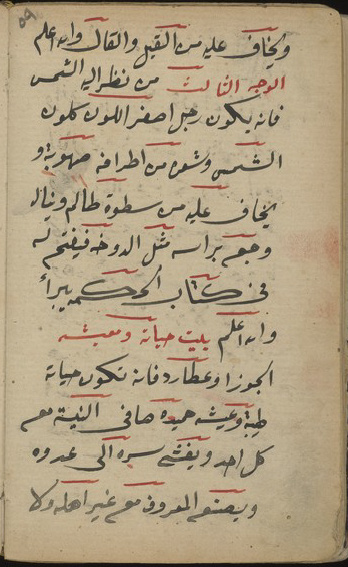 ٥٩
ويخاف عليه من القيل والقال والله اعلم
الوجه الثالث من نظر اليه الشمس
فانه يكون رجل اصفر اللون كلون
الشمس وشعره من اطرافه صهوبة و
يخاف عليه من سطوة ظالم ويناله
وجع براسه مثل الدوخه فيفتح له
في كتاب الحكمه يبرأ
والله اعلم بيت حياته ومعيشته
الجوزا وعطارد فانه تكون حياته
طيبة وعيشه حميده صافى النية مع
كل احد ويفشى سره الى عدوه
ويصنع المعروف مع غير اهله ولا